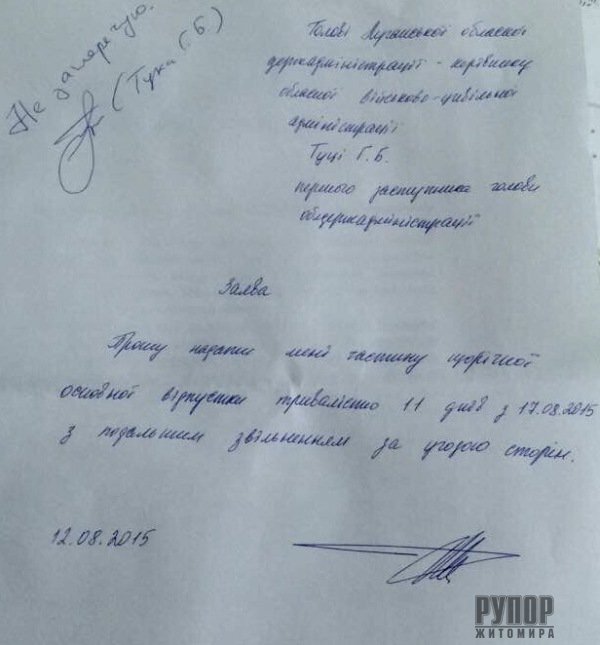 Не заперечую.
(Тука Г.Б.)
Голові Луганської обласної
держадміністрації - керівнику
обласної військово-цивільної
адміністрації
Туці Г.Б.
першого заступника голови
облдержадміністрації
Заява
Прошу надати мені частину щорічної
основної відпустки тривалістю 11 днів з 17.08.2015
з подальшим звільненням за угодою сторін.
12.08.2015
РУПОР
ЖИТОМИРА